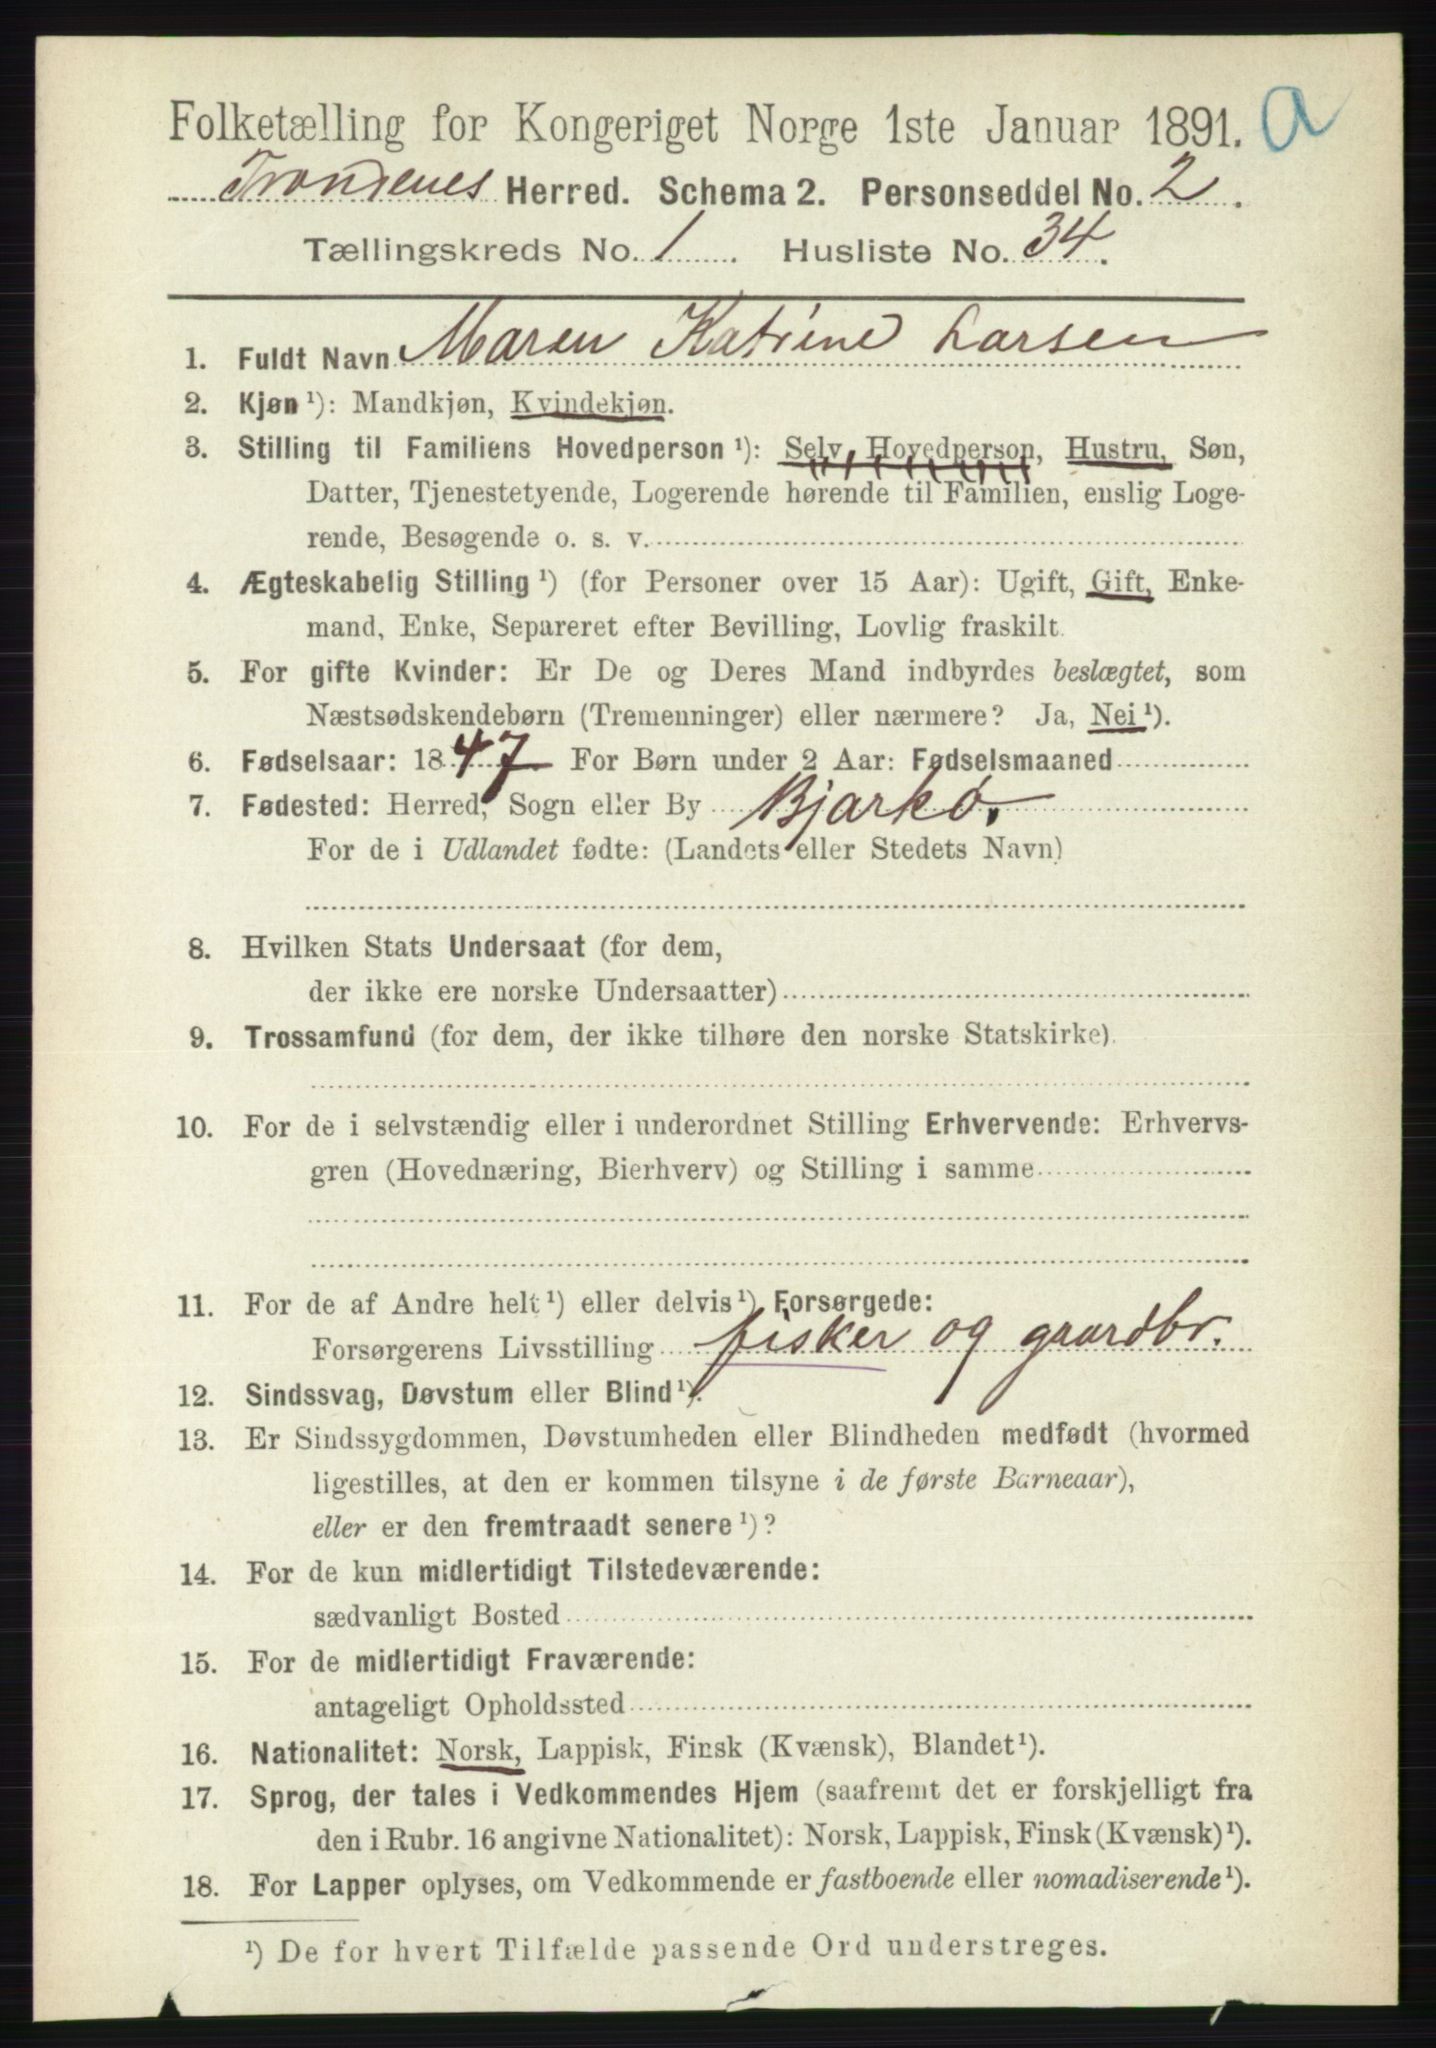 Folketælling for Kongeriget Norge 1ste Januar 1891. a
Trondenes Herred. Schema 2. Personseddel No. 2.
Tællingskreds No. 1. Husliste No. 34.
1. Fuldt Navn Maren Katrine Larsen
2. Kjøn ¹): Mandkjøn, Kvindekjøn.
3. Stilling til Familiens Hovedperson ¹): Selv, Hovedperson, Hustru, Søn,
Datter, Tjenestetyende, Logerende hørende til Familien, enslig Loge-
rende, Besøgende o. s. v.
4. Ægteskabelig Stilling ¹) (for Personer over 15 Aar): Ugift, Gift, Enke-
mand, Enke, Separeret efter Bevilling, Lovlig fraskilt.
5. For gifte Kvinder: Er De og Deres Mand indbyrdes beslægtet, som
Næstsødskendebørn (Tremenninger) eller nærmere? Ja, Nei ¹).
6. Fødselsaar: 1847. For Børn under 2 Aar: Fødselsmaaned
7. Fødested: Herred, Sogn eller By Bjarkø.
For de i Udlandet fødte: (Landets eller Stedets Navn)
8. Hvilken Stats Undersaat (for dem,
der ikke ere norske Undersaatter)
9. Trossamfund (for dem, der ikke tilhøre den norske Statskirke).
10. For de i selvstændig eller i underordnet Stilling Erhvervende: Erhvervs-
gren (Hovednæring, Bierhverv) og Stilling i samme
11. For de af Andre helt ¹) eller delvis ¹) Forsørgede:
Forsørgerens Livsstilling fisker og gaardbr.
12. Sindssvag, Døvstum eller Blind ¹).
13. Er Sindssygdommen, Døvstumheden eller Blindheden medfødt (hvormed
ligestilles, at den er kommen tilsyne i de første Barneaar),
eller er den fremtraadt senere ¹)?
14. For de kun midlertidigt Tilstedeværende:
sædvanligt Bosted
15. For de midlertidigt Fraværende:
antageligt Opholdssted
16. Nationalitet: Norsk, Lappisk, Finsk (Kvænsk), Blandet ¹).
17. Sprog, der tales i Vedkommendes Hjem (saafremt det er forskjelligt fra
den i Rubr. 16 angivne Nationalitet): Norsk, Lappisk, Finsk (Kvænsk) ¹).
18. For Lapper oplyses, om Vedkommende er fastboende eller nomadiserende ¹).
¹) De for hvert Tilfælde passende Ord understreges.